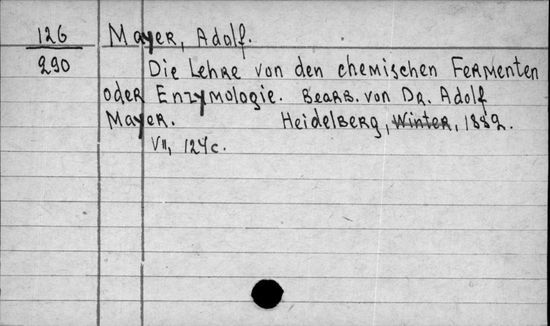 126 Mayer, Adolf.
290 Die Lehre von den chemischen Fermenten
oder Enzymologie. Bearb. von Dr. Adolf
Mayer. Heidelberg, Winter, 1882.
VII, 124c.